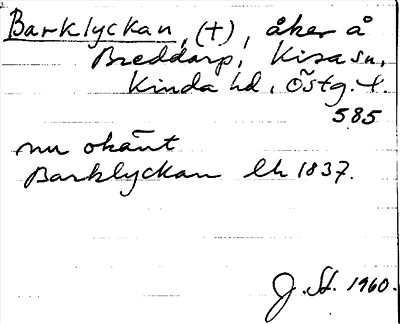 Barklyckan, (†), åker å
Breddarp, Kisa sn,
Kinda hd, Östg. l.
585
nu okänt
Barklyckan lh 1837.
J. St. 1960.